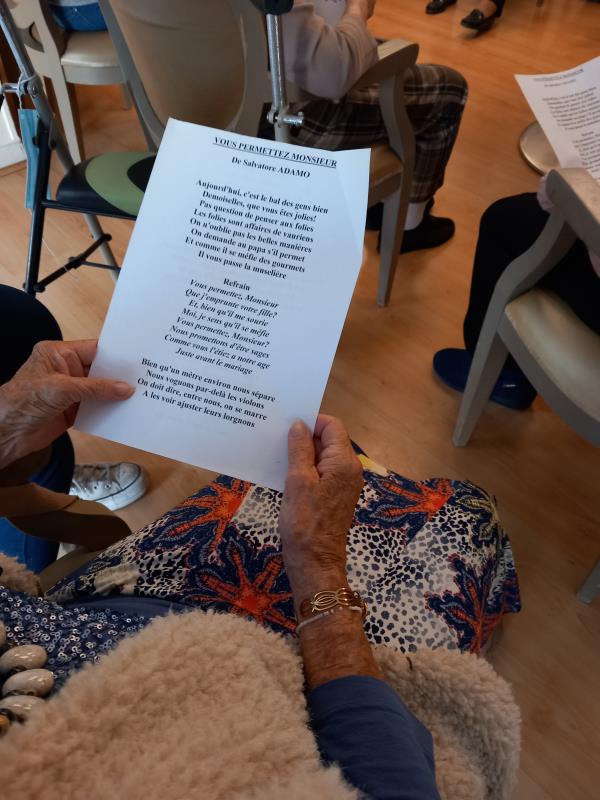 VOUS PERMETTEZ MONSIEUR
De Salvatore ADAMO
Aujourd'hui, c'est le bal des gens bien
Demoiselles, que vous êtes jolies!
Pas question de penser aux folies
Les folies sont affaires de vauriens
On n'oublie pas les belles manières
On demande au papa s'il permet
Et comme il se méfie des gourmets
Il vous passe la muselière
Refrain
Vous permettez, Monsieur
Que j'emprunte votre fille?
Et, bien qu'il me sourie
Moi, je sens qu'il se méfie
Vous permettez, Monsieur?
Nous promettons d'être sages
Comme vous l'étiez a notre age
Juste avant le mariage
Bien qu'un mètre environ nous sépare
Nous voguons par-delà les violons
On doit dire, entre nous, on se marre
A les voir ajuster leurs lorgnons